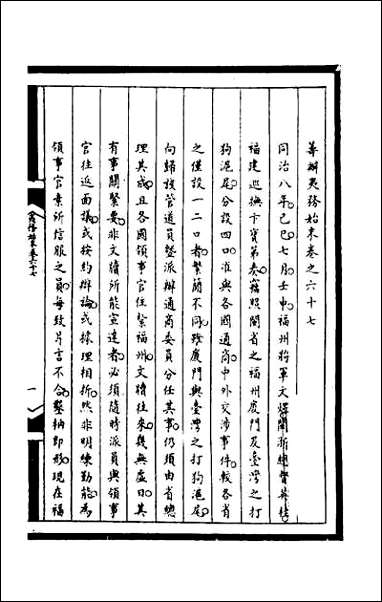 籌辦夷務始末卷之六十七
同治八年己巳七月壬申福州將軍文煜閩浙總督英桂
福建巡撫卞寶第奏竊照閩省之福州廈門及臺灣之打
狗滬尾分設四口准與各國通商中外交涉事件較各省
之僅設一二口者繁簡不同雖廈門與臺灣之打狗滬尾
向歸該管道員暨派辦通商委員分任其事仍須由省總
理其成且各國領事官住紮福州文牘往來幾無虛日其
有事關緊要非文牘所能宣達者必須隨時派員與領事
官往返面議或按約辯論或據理相折然非明練勤能為
領事官素所信服之員每致片言不合鑿枘即形現在福
一